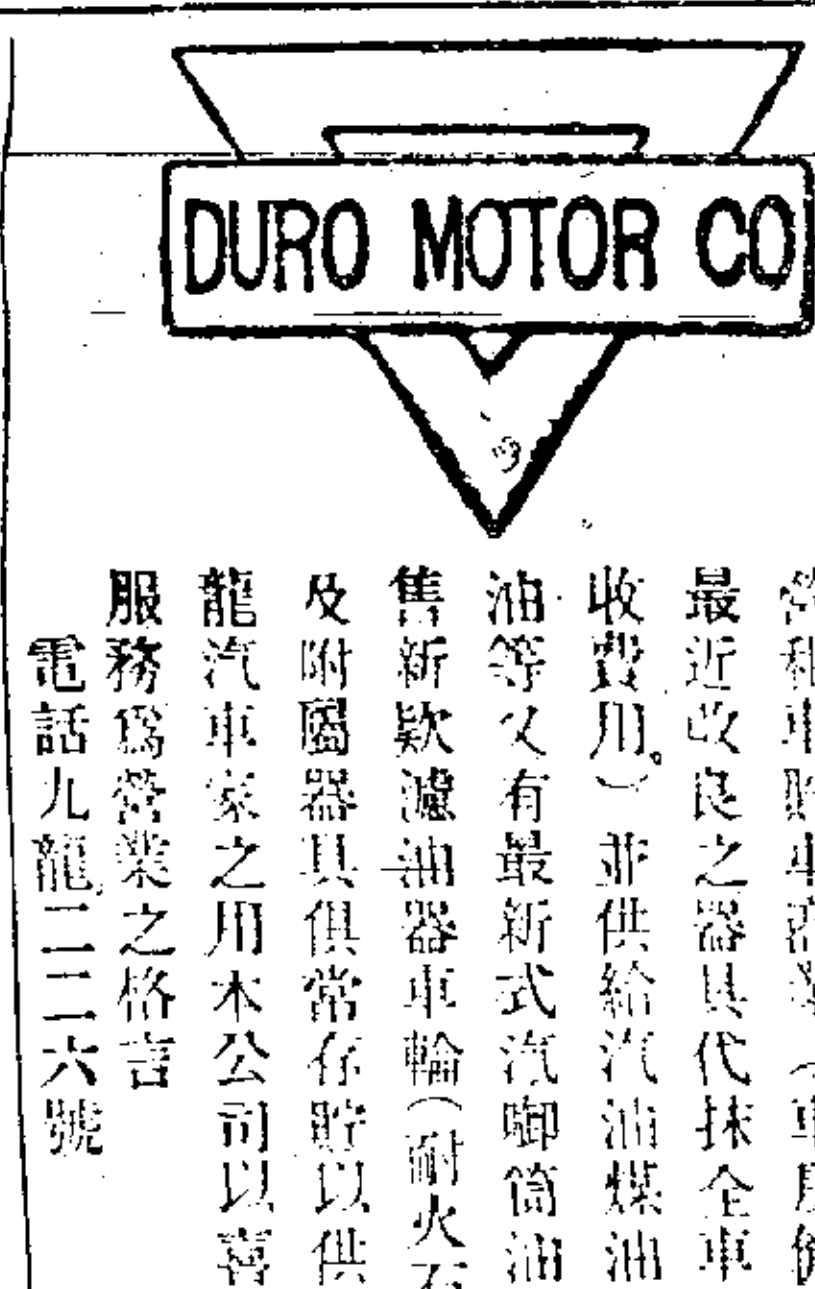 DURO MOTOR CO
最近改良之器具代抹全車
收費用。）並供給汽油煤油
油等又有最新式汽啣筒油
售新欵濾油器車輪（耐火石
及附屬器具俱常存貯以供
龍汽車家之用本公司以喜
服務爲營業之格言
電話九龍二二六號